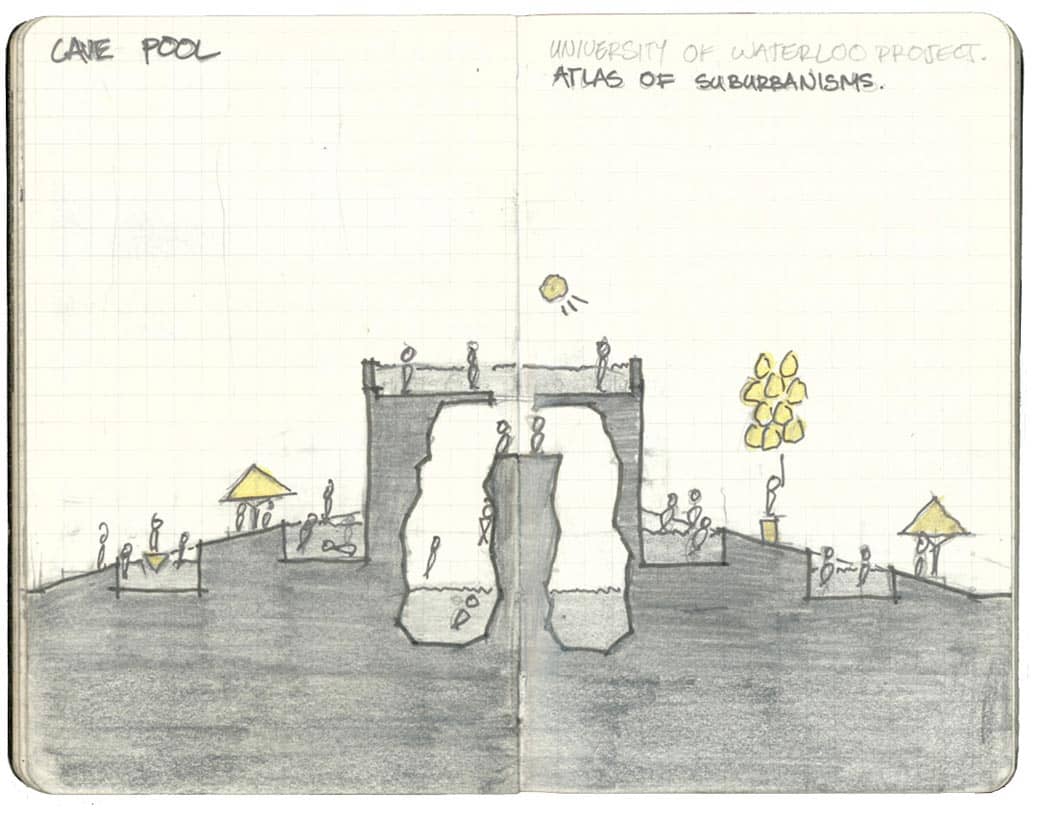 CAVE POOL
UNIVERSITY OF WATERLOO PROJECT.
ATLAS OF SUBURBANISMS.